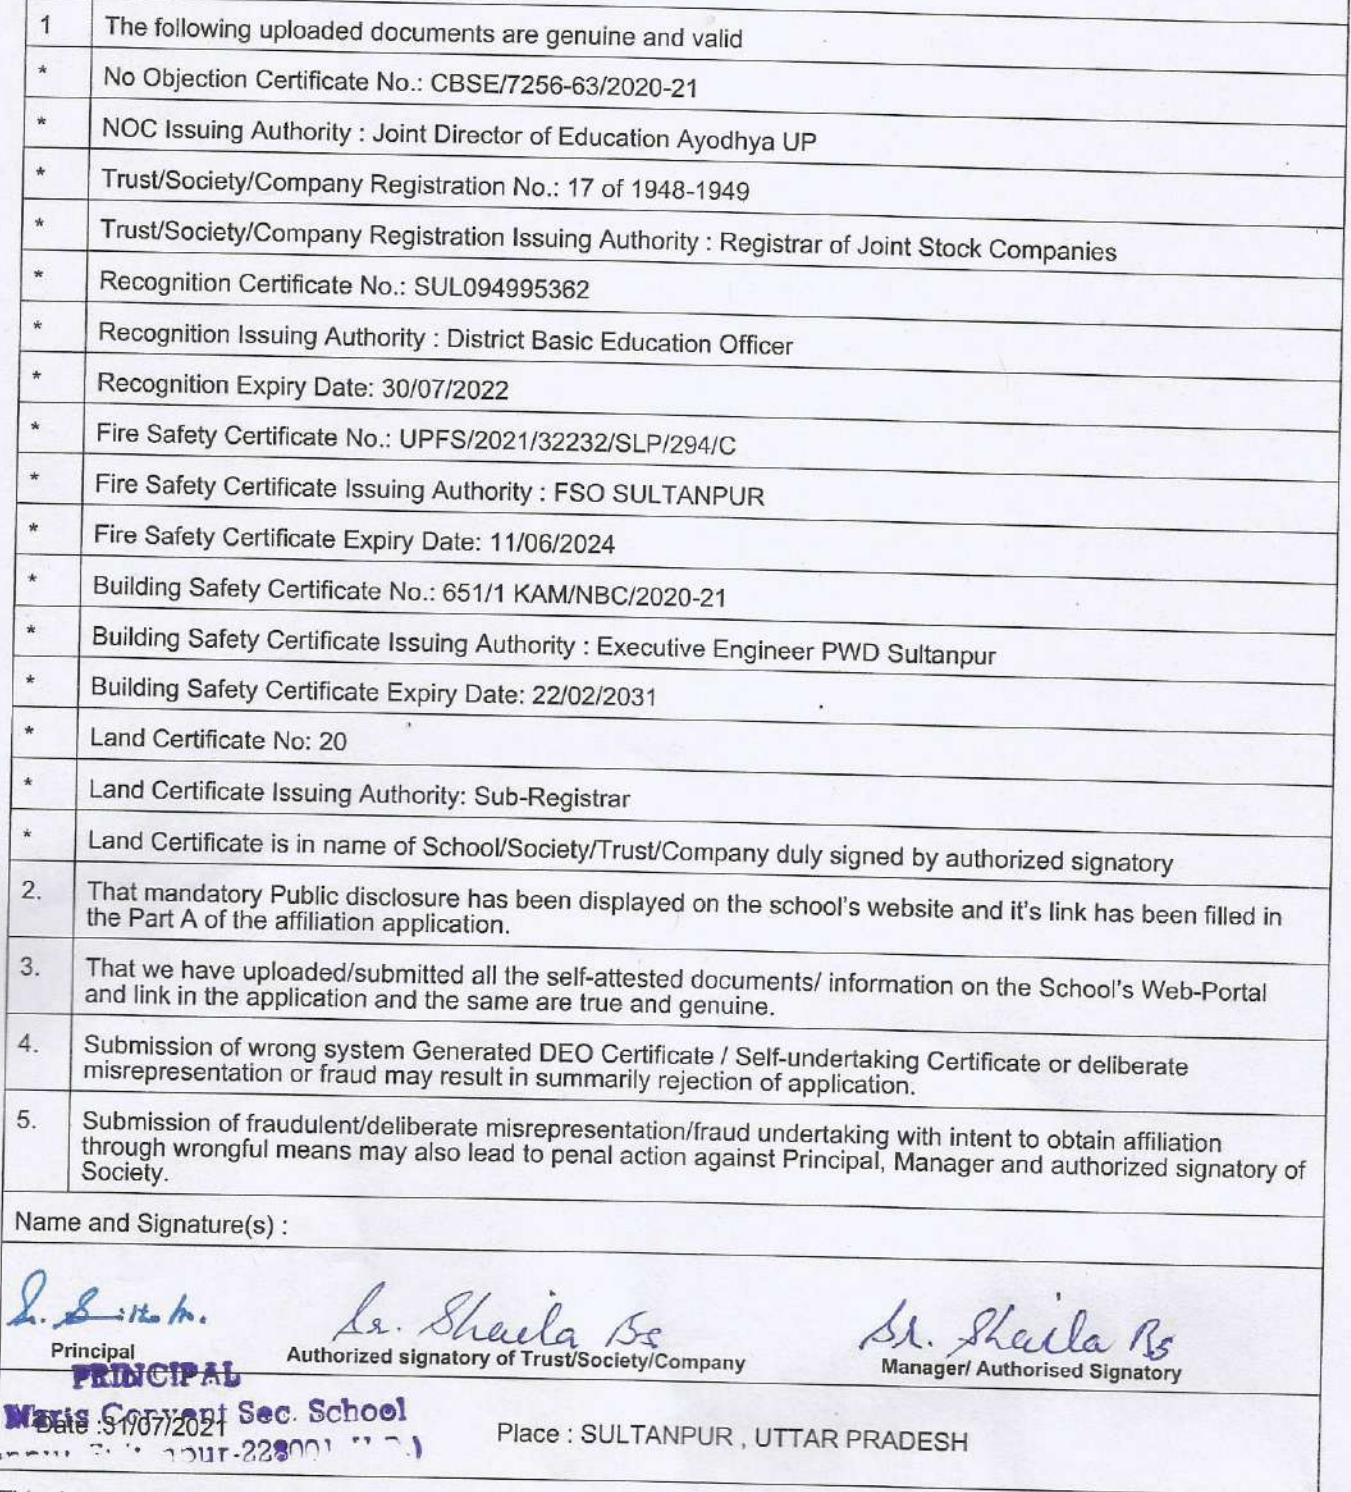 1 The following uploaded documents are genuine and valid
* No Objection Certificate No.: CBSE/7256-63/2020-21
* NOC Issuing Authority : Joint Director of Education Ayodhya UP
* Trust/Society/Company Registration No.: 17 of 1948-1949
* Trust/Society/Company Registration Issuing Authority : Registrar of Joint Stock Companies
* Recognition Certificate No.: SUL094995362
* Recognition Issuing Authority : District Basic Education Officer
* Recognition Expiry Date: 30/07/2022
* Fire Safety Certificate No.: UPFS/2021/32232/SLP/294/C
* Fire Safety Certificate Issuing Authority : FSO SULTANPUR
* Fire Safety Certificate Expiry Date: 11/06/2024
* Building Safety Certificate No.: 651/1 KAM/NBC/2020-21
* Building Safety Certificate Issuing Authority : Executive Engineer PWD Sultanpur
* Building Safety Certificate Expiry Date: 22/02/2031
* Land Certificate No: 20
* Land Certificate Issuing Authority: Sub-Registrar
* Land Certificate is in name of School/Society/Trust/Company duly signed by authorized signatory
2. That mandatory Public disclosure has been displayed on the school's website and it's link has been filled in
the Part A of the affiliation application.
3. That we have uploaded/submitted all the self-attested documents/ information on the School's Web-Portal
and link in the application and the same are true and genuine.
4. Submission of wrong system Generated DEO Certificate / Self-undertaking Certificate or deliberate
misrepresentation or fraud may result in summarily rejection of application.
5. Submission of fraudulent/deliberate misrepresentation/fraud undertaking with intent to obtain affiliation
through wrongful means may also lead to penal action against Principal, Manager and authorized signatory of
Society.
Name and Signature(s) :
Sr. Sheila Bs Sr. Sheila Bs
Principal Authorized signatory of Trust/Society/Company Manager/ Authorised Signatory
PRINCIPAL
Convent Sec. School
Date :31/07/2021 Place : SULTANPUR , UTTAR PRADESH
-228001